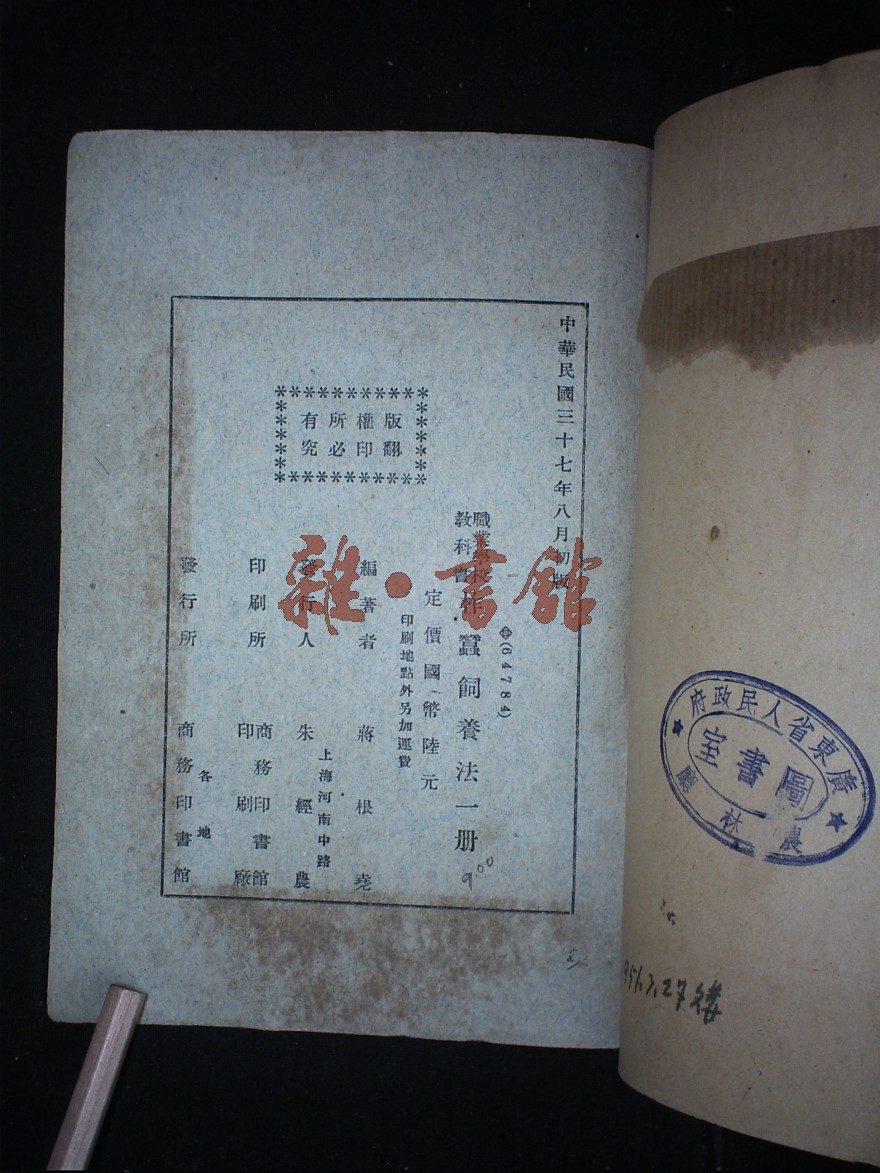 中華民國三十七年八月初版
(64784)
職業學校
教科書
柞蠶飼養法一册
定價國幣陸元
印刷地點外另加運費
版權所有
翻印必究
編著者 蔣根堯
發行人 朱經農
上海河南中路
印刷所 商務印書館
印刷廠
發行所 商務印書館
各地
9.00
雜·書館
廣東省人民政府
農林廳
圖書室